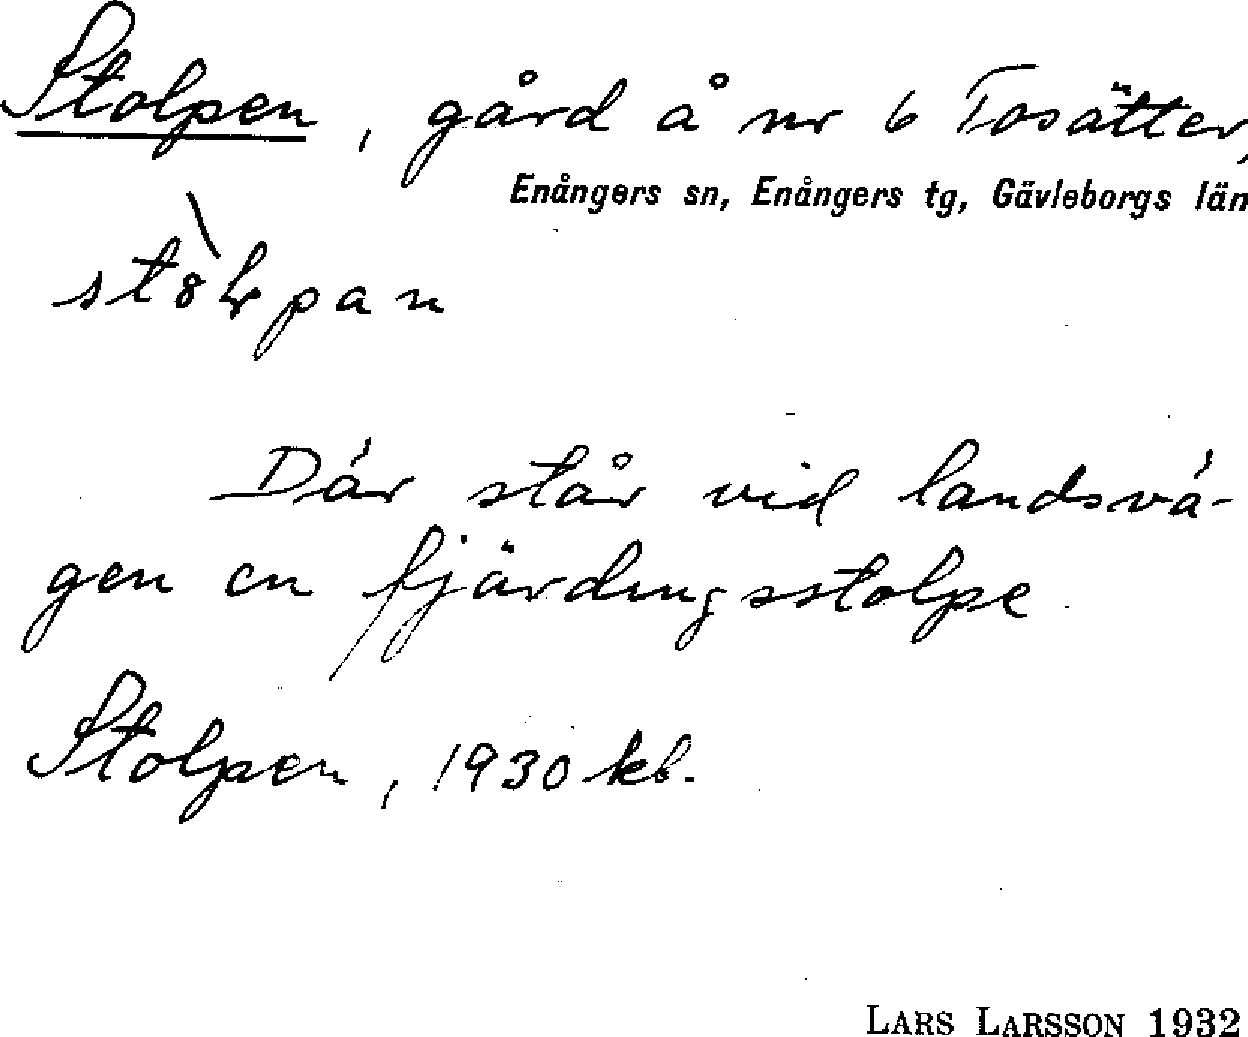 Stolpen, gård å nr 6 Tosätter,
Enångers sn, Enångers tg, Gävleborgs län
Där står vid landsvä-
gen en fjärdingsstolpe
Stolpen, 1930 kb.
LARS LARSSON 1932